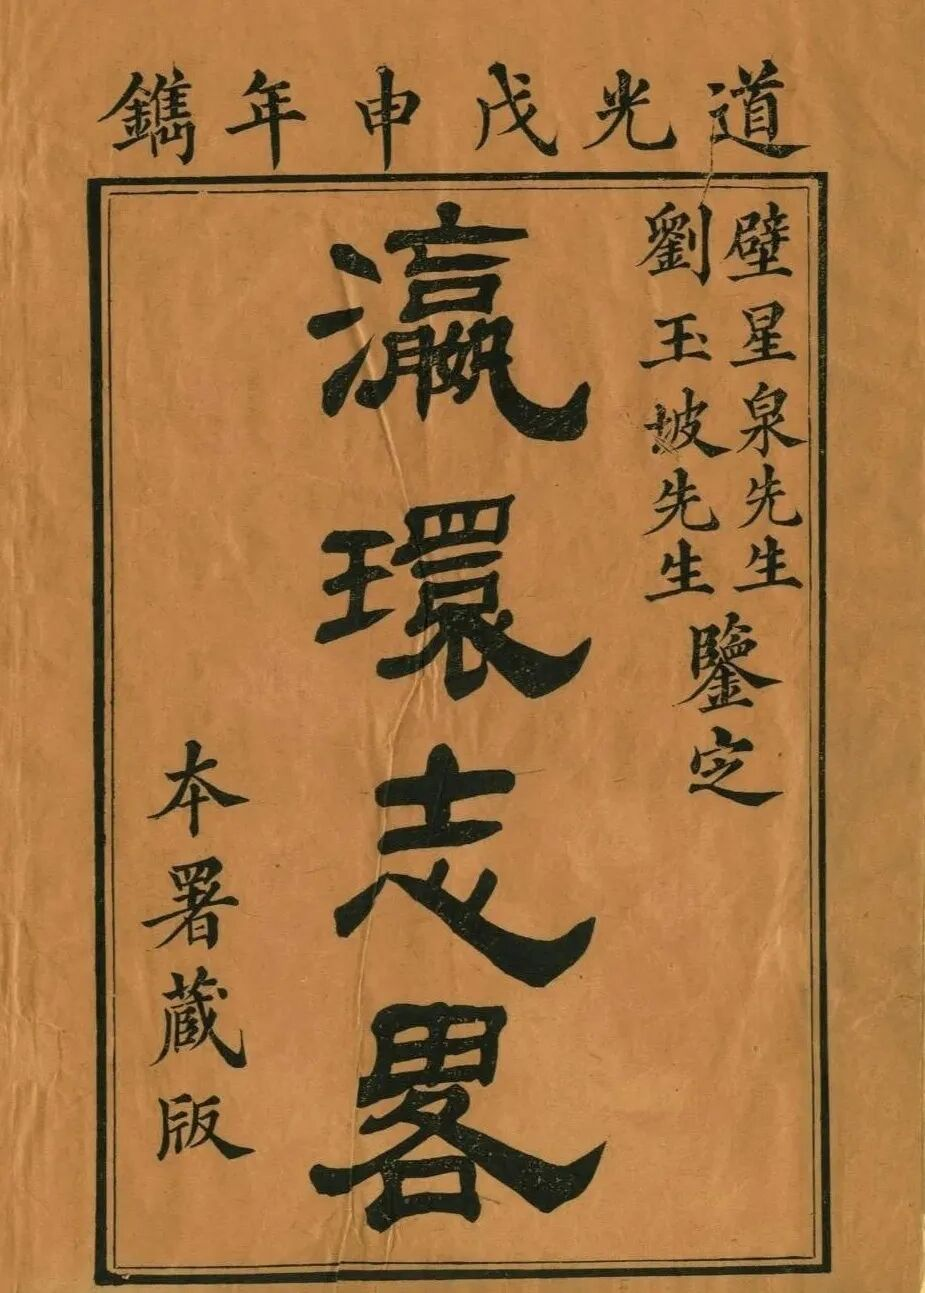 道光戊申年鐫
壁星泉先生
劉玉坡先生
鑒定
瀛環志畧
本署蔵版